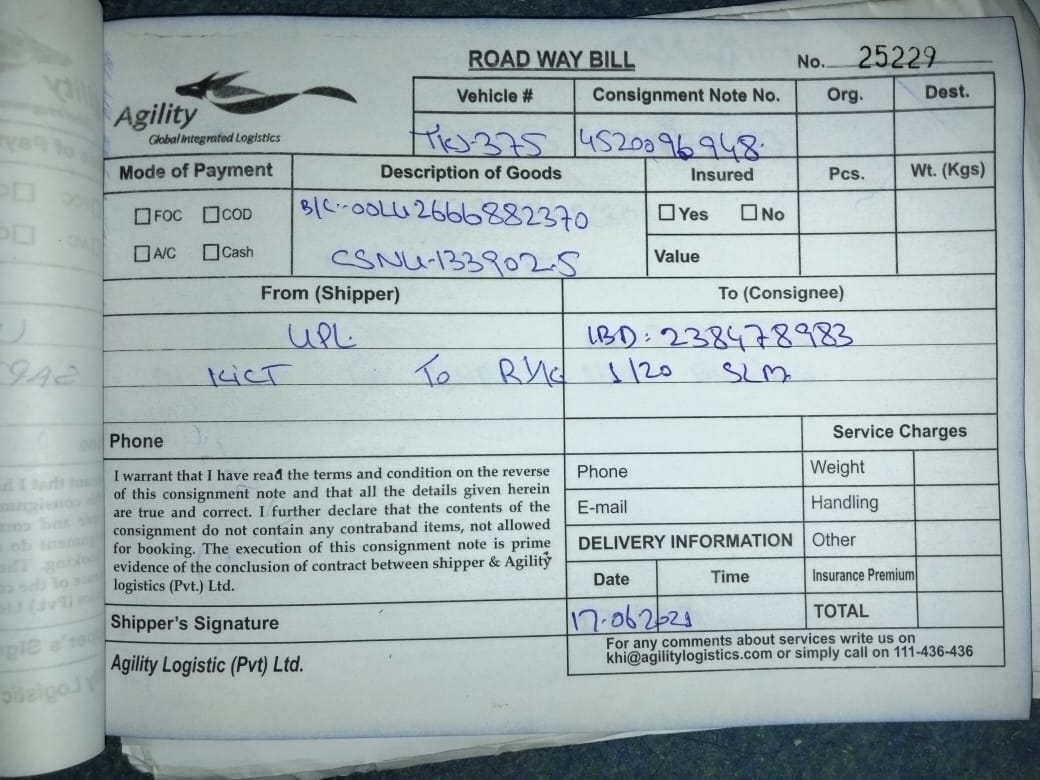 ROAD WAY BILL
No. 25229
Agility
Global Integrated Logistics
Vehicle # Consignment Note No. Org. Dest.
TKJ-375 4520096948
Mode of Payment Description of Goods Insured Pcs. Wt. (Kgs)
FOC COD B/L:-OOLU2666882370 Yes No
A/C Cash CSNU-133902-5 Value
From (Shipper) To (Consignee)
UPL. IBD: 238478983
KICT To 1/20 SLM
Service Charges
Phone
I warrant that I have read the terms and condition on the reverse
of this consignment note and that all the details given herein
are true and correct. I further declare that the contents of the
consignment do not contain any contraband items, not allowed
for booking. The execution of this consignment note is prime
evidence of the conclusion of contract between shipper & Agility
logistics (Pvt.) Ltd.
Phone Weight
E-mail Handling
DELIVERY INFORMATION Other
Date Time Insurance Premium
17.06.2021 TOTAL
Shipper's Signature
For any comments about services write us on
khi@agilitylogistics.com or simply call on 111-436-436
Agility Logistic (Pvt) Ltd.